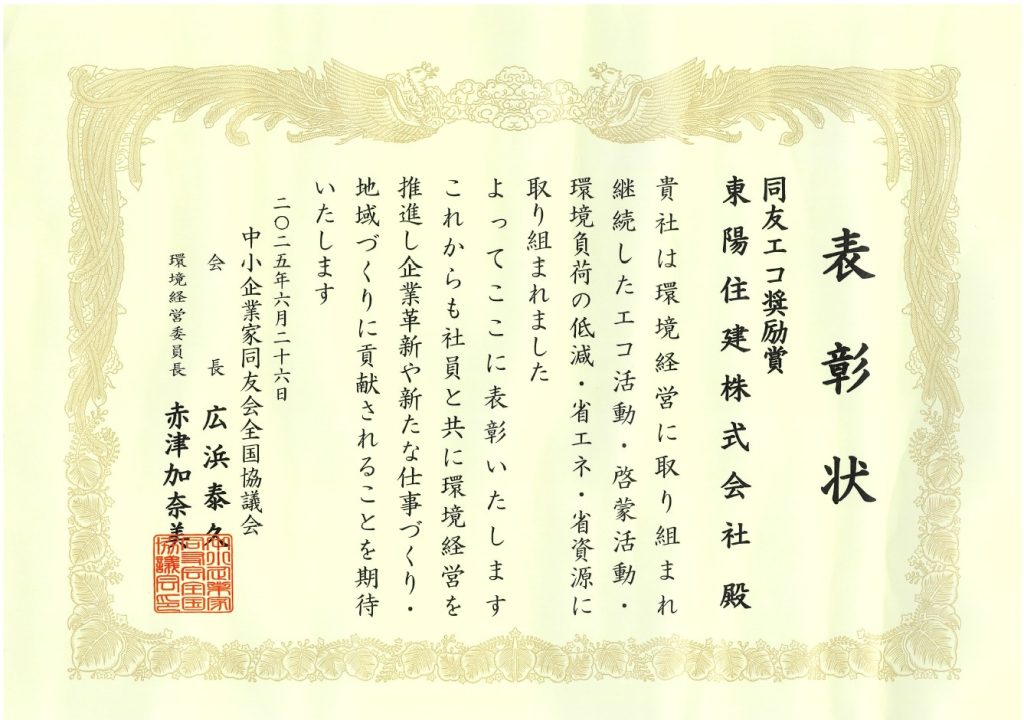 表彰状
同友エコ奨励賞
東陽住建株式会社 殿
貴社は環境経営に取り組まれ
継続したエコ活動・啓蒙活動・
環境負荷の低減・省エネ・省資源に
取り組まれました
よってここに表彰いたします
これからも社員と共に環境経営を
推進し企業革新や新たな仕事づくり・
地域づくりに貢献されることを期待
いたします
二〇二五年六月二十六日
中小企業家同友会全国協議会
会長 広浜泰久
環境経営委員長 赤津加奈美
中小企業家
同友会全国
協議会之印